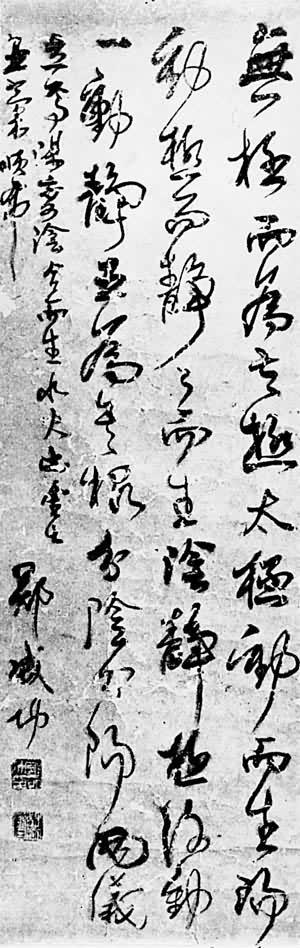 無極而為極太極動而生陽
動極而靜々而生陰靜極復動
一動靜互為其根分陰分陽兩儀
陰合而生水火
順布
鄭成功